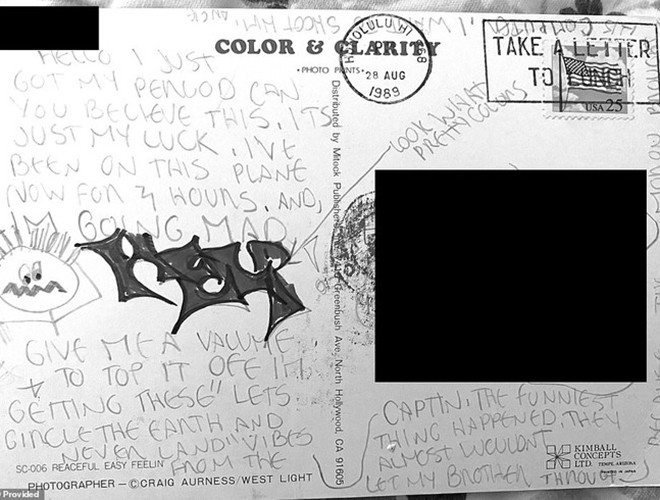 HELLO I JUST
GOT MY PERIOD CAN
YOU BELIEVE THIS, ITS
JUST MY LUCK, I'VE
BEEN ON THIS PLANE
NOW FOR HOURS, AND,
I'M GOING MAD
GIVE ME A VALUME
TO TOP IT OFF IM
GETTING THESE" LETS
CIRCLE THE EARTH AND
NEVER LAND" VIBES
FROM THE
SC-006 PEACEFUL EASY FEELIN'
PHOTOGRAPHER - © CRAIG AURNESS/WEST LIGHT
COLOR & CLARITY
• PHOTO PRINTS •
HONOLULU HI 968
28 AUG
1989
TAKE A LETTER
TO LUNCH
USA 25
LOOK WHAT
PRETTY COLORS
Distributed by Mitock Publishers Greenbush Ave., North Hollywood, CA 91605
CAPTIN, THE FUNNIEST
THING HAPPENED, THEY
ALMOST WOULDNT
LET MY BROTHER THROUGH
KIMBALL
CONCEPTS
LTD. TEMPE, ARIZONA
PRINTED IN JAPAN
Provided